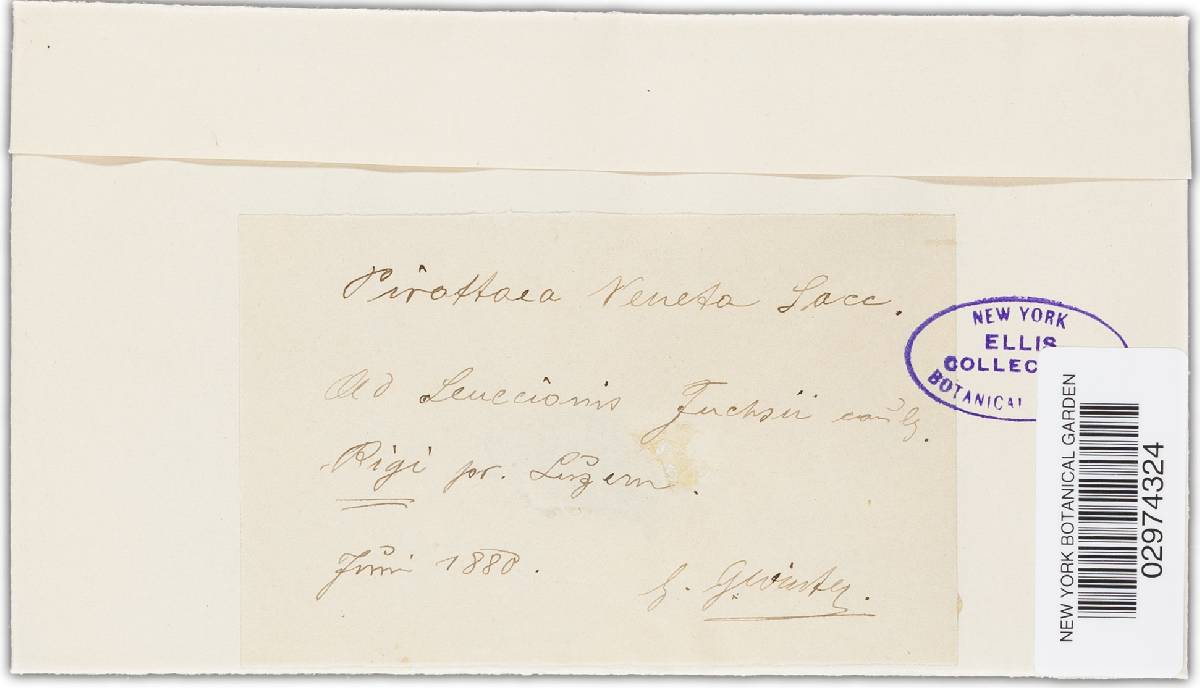 Pirottaea Veneta Sacc.
Ad Senecionis Fuchsii caul.
Rigi pr. Luzern.
Juni 1880.
G. Winter.
NEW YORK
ELLIS
COLLEC
BOTANICAL
NEW YORK BOTANICAL GARDEN
02974324